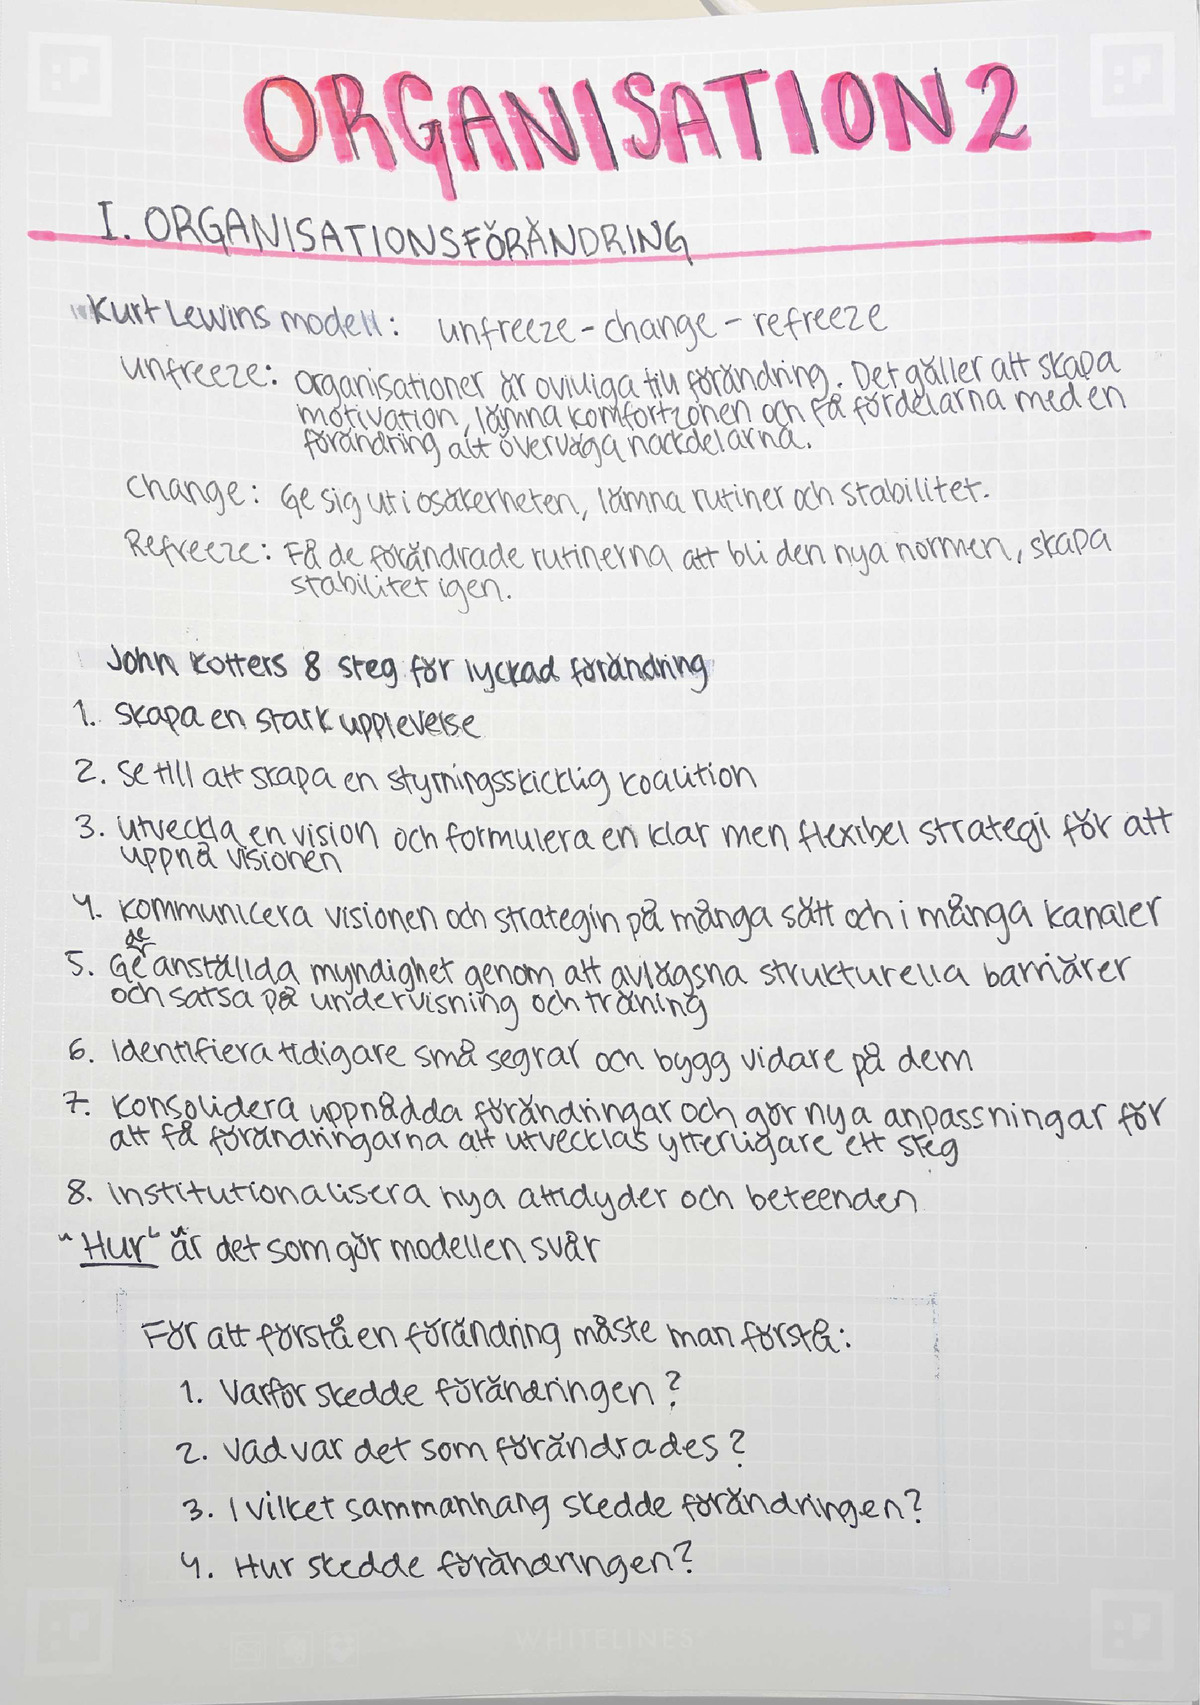 ORGANISATION 2
I. ORGANISATIONSFÖRÄNDRING
Kurt Lewins modell: unfreeze - change - refreeze
Unfreeze: Organisationer är ovilliga till förändring. Det gäller att skapa
motivation, lämna komfortzonen och få fördelarna med en
förändring att överväga nackdelarna.
Change: Ge sig ut i osäkerheten, lämna rutiner och stabilitet.
Refreeze: Få de förändrade rutinerna att bli den nya normen, skapa
stabilitet igen.
John Kotters 8 steg för lyckad förändring
1. Skapa en stark upplevelse
2. Se till att skapa en styrningsskicklig koalition
3. Utveckla en vision och formulera en klar men flexibel strategi för att
uppnå visionen
4. Kommunicera visionen och strategin på många sätt och i många kanaler
5. Ge de anställda myndighet genom att avlägsna strukturella barriärer
och satsa på undervisning och träning
6. Identifiera tidigare små segrar och bygg vidare på dem
7. Konsolidera uppnådda förändringar och gör nya anpassningar för
att få förändringarna att utvecklas ytterligare ett steg
8. Institutionalisera nya attidyder och beteenden
"Hur" är det som gör modellen svår
För att förstå en förändring måste man förstå:
1. Varför skedde förändringen?
2. Vad var det som förändrades?
3. I vilket sammanhang skedde förändringen?
4. Hur skedde förändringen?
WHITELINES